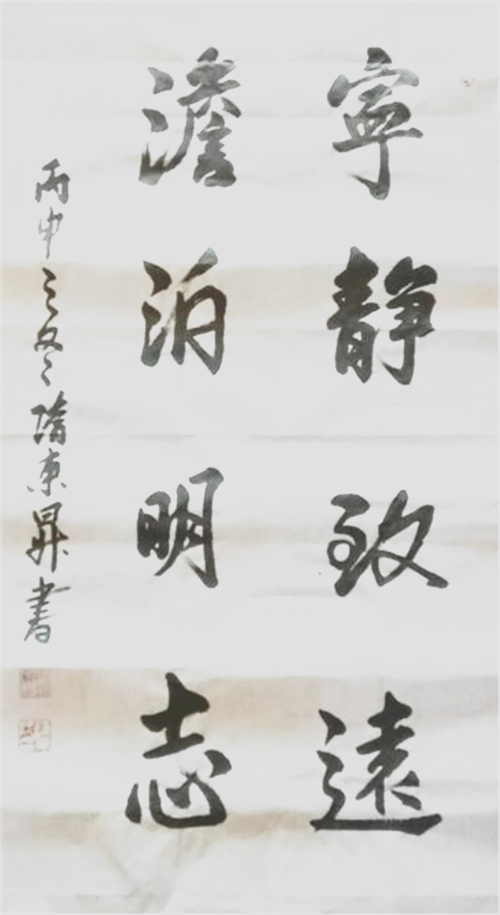 寧靜致遠
澹泊明志
丙申之冬隋東昇書